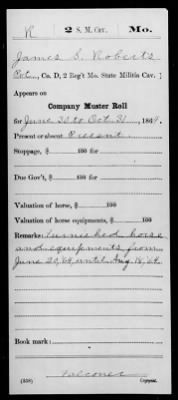 R 2 S. M. Cav. Mo.
James S. Roberts
Pvt., Co. D, 2 Reg't Mo. State Militia Cav.
Appears on
Company Muster Roll
for June 30 to Oct 31, 1864.
Present or absent Present
Stoppage, $ 100 for
Due Gov't, $ 100 for
Valuation of horse, $ 100
Valuation of horse equipments, $ 100
Remarks: Furnished horse
and equipments from
June 20, 64, until Aug 18, 64.
Book mark:
(858) Falconer Copyist.